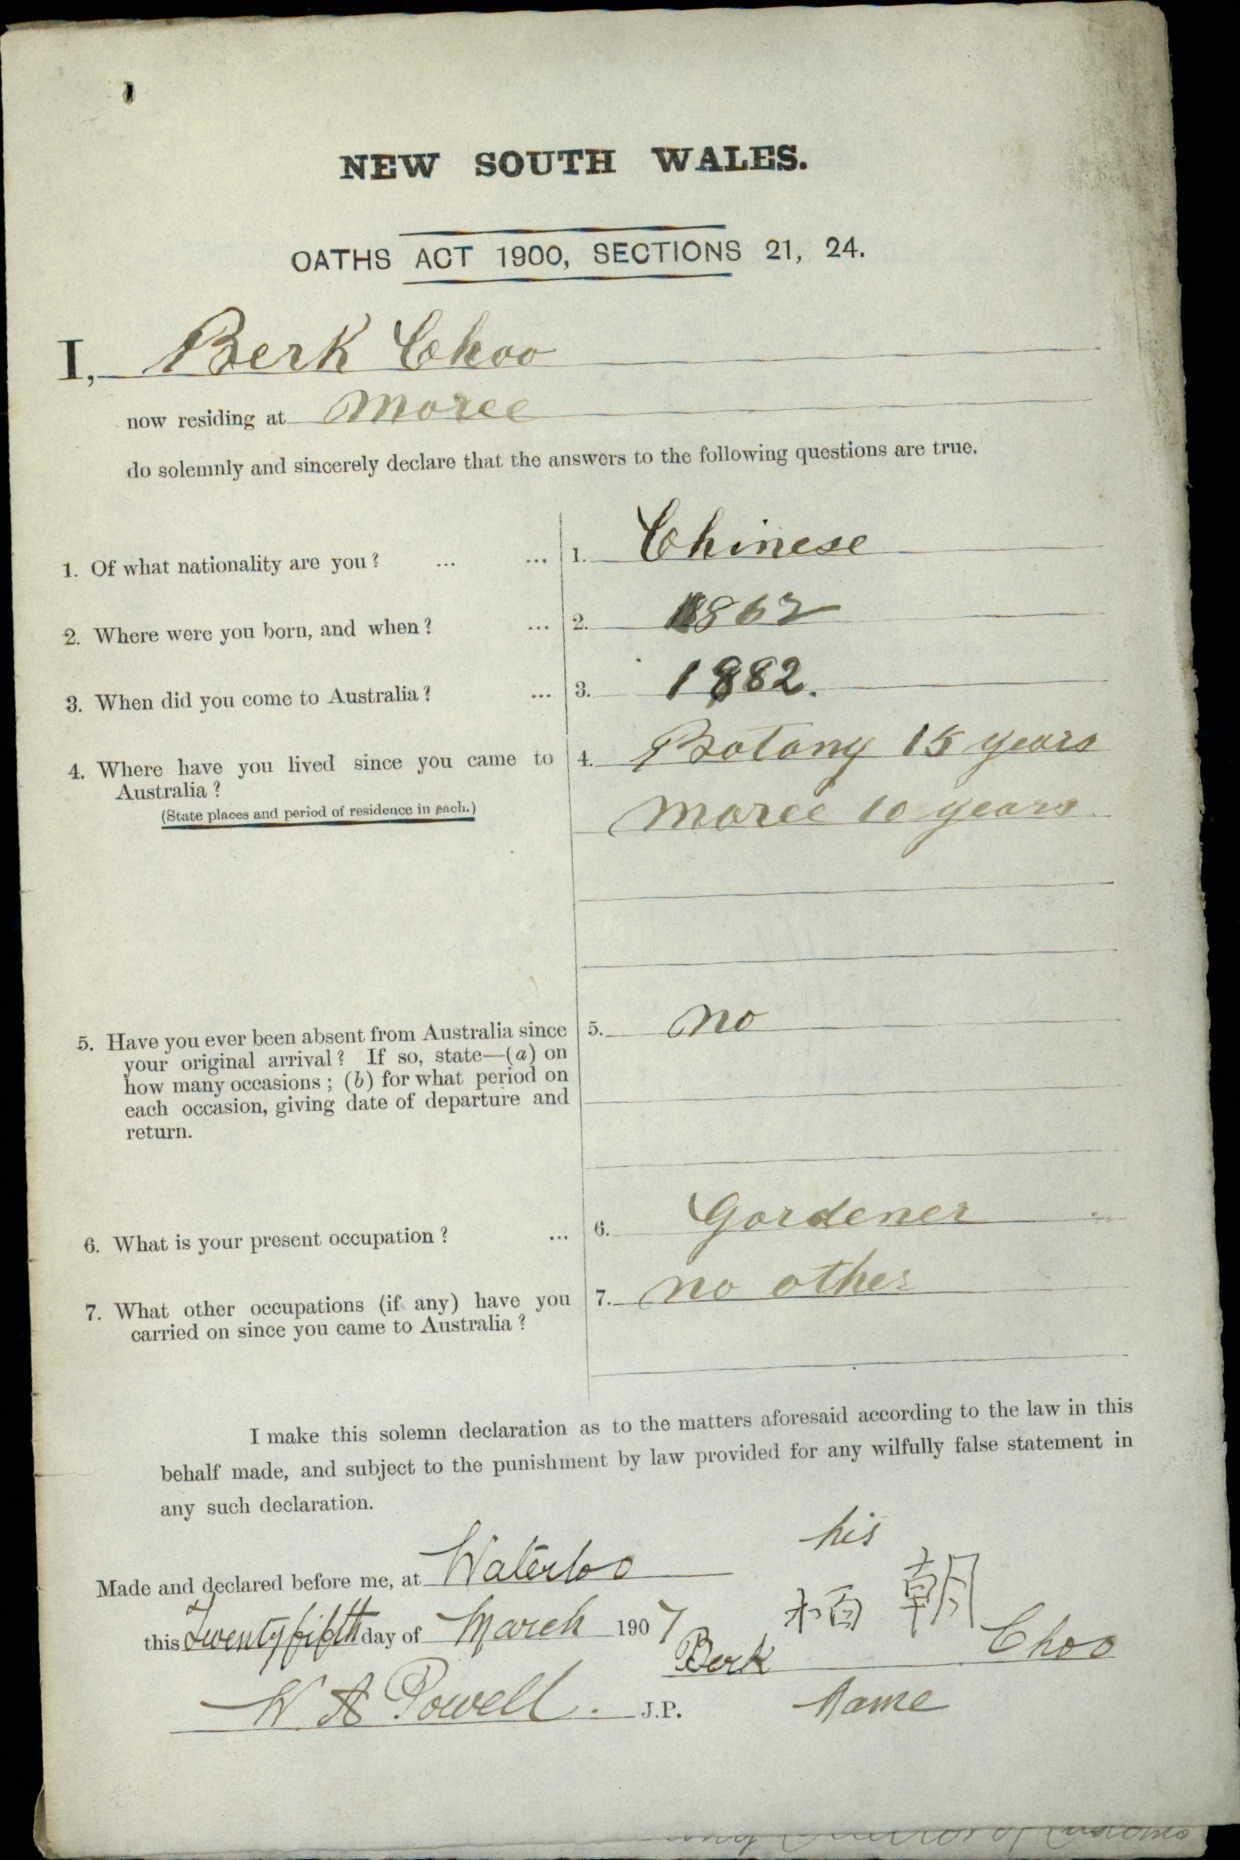 NEW SOUTH WALES.
OATHS ACT 1900, SECTIONS 21, 24.
I, Berk Choo
now residing at Moree
do solemnly and sincerely declare that the answers to the following questions are true.
1. Of what nationality are you? ... ... 1. Chinese
2. Where were you born, and when? ... 2. 1862
3. When did you come to Australia? ... 3. 1882.
4. Where have you lived since you came to 4. Botany 15 years
Australia?
(State places and period of residence in each.) Moree 10 years
5. Have you ever been absent from Australia since 5. no
your original arrival? If so, state—(a) on
how many occasions; (b) for what period on
each occasion, giving date of departure and
return.
6. What is your present occupation? ... 6. Gardener
7. What other occupations (if any) have you 7. no other
carried on since you came to Australia?
I make this solemn declaration as to the matters aforesaid according to the law in this
behalf made, and subject to the punishment by law provided for any wilfully false statement in
any such declaration.
his
Made and declared before me, at Waterloo
朝
this Twentyfifth day of March 1907
Berk Choo
W A Powell. J.P. Name